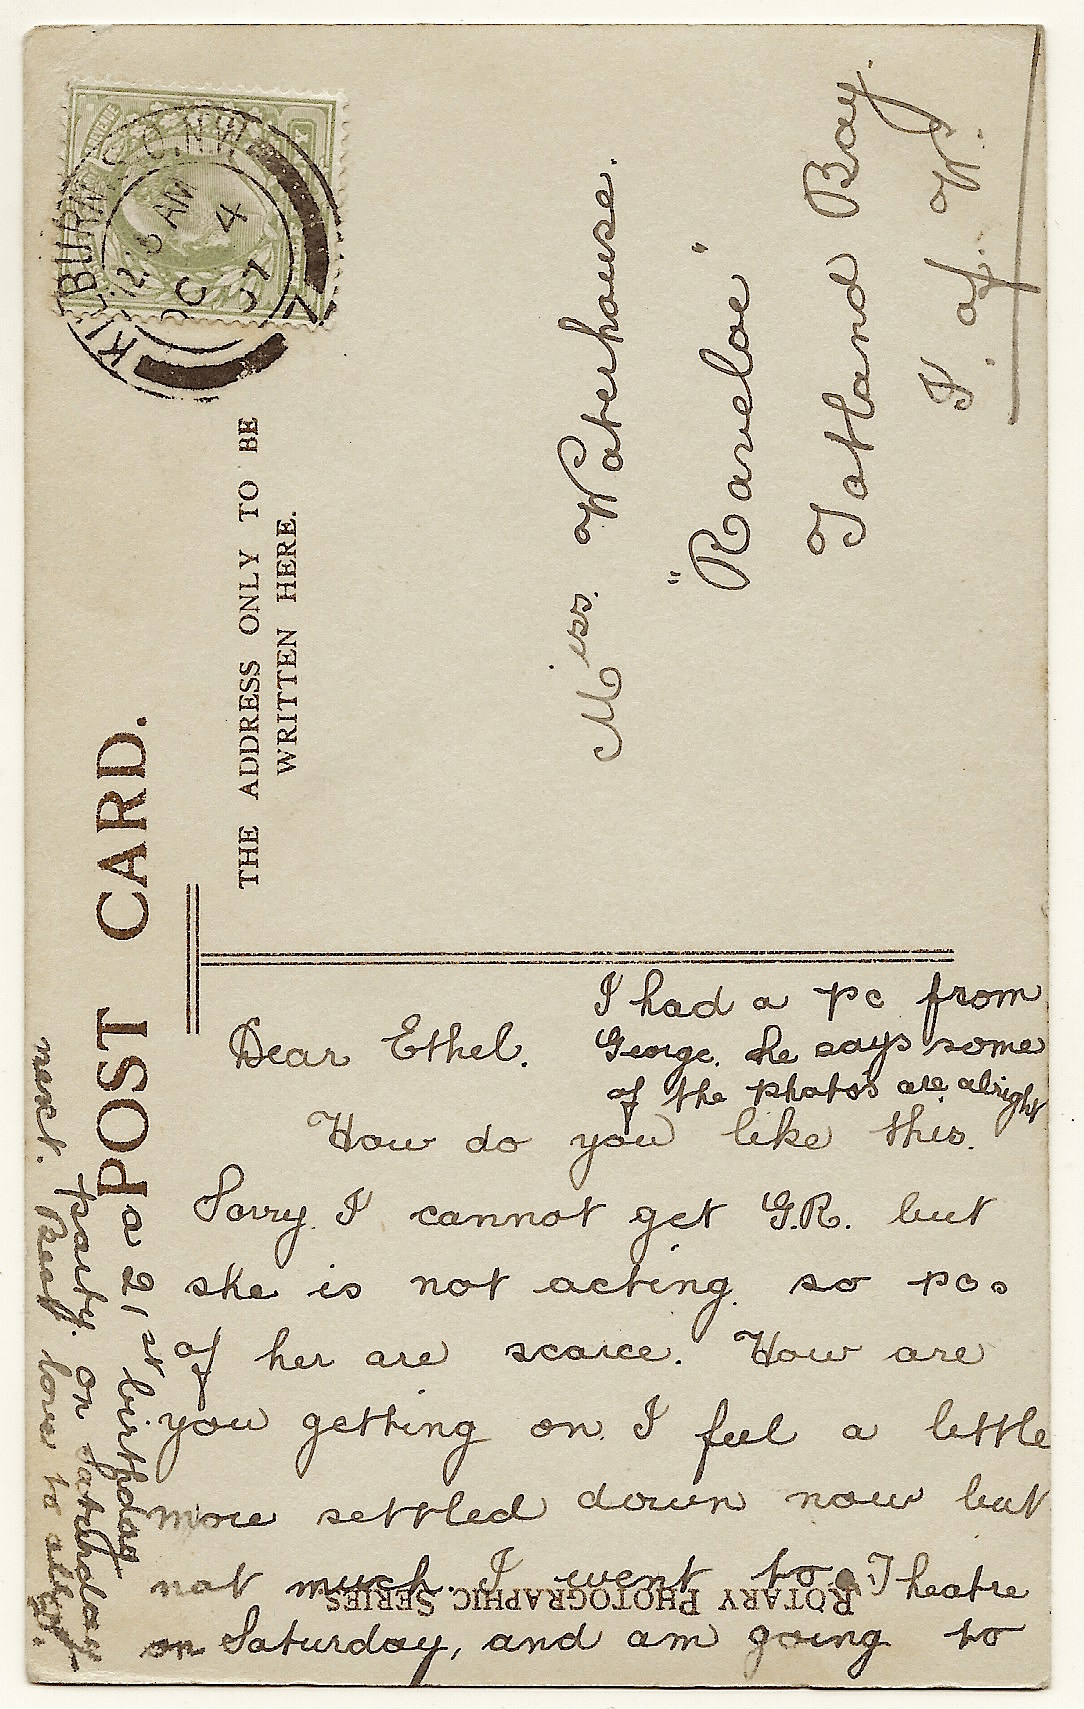 POST CARD.
THE ADDRESS ONLY TO BE
WRITTEN HERE.
KILBURN S.O. N.W.
12.15 AM
OC 4
07
Miss. Waterhouse.
"Raveloe"
Totland Bay.
I. of. W.
I had a pc from
George. he says some
of the photos are alright
Dear Ethel.
How do you like this.
Sorry I cannot get G.R. but
she is not acting so pcs
of her are scarce. How are
you getting on. I feel a little
more settled down now but
not much. I went to Theatre
on Saturday, and am going to
a 21st birthday
party on Saturday
next. Best love to all
ROTARY PHOTOGRAPHIC SERIES